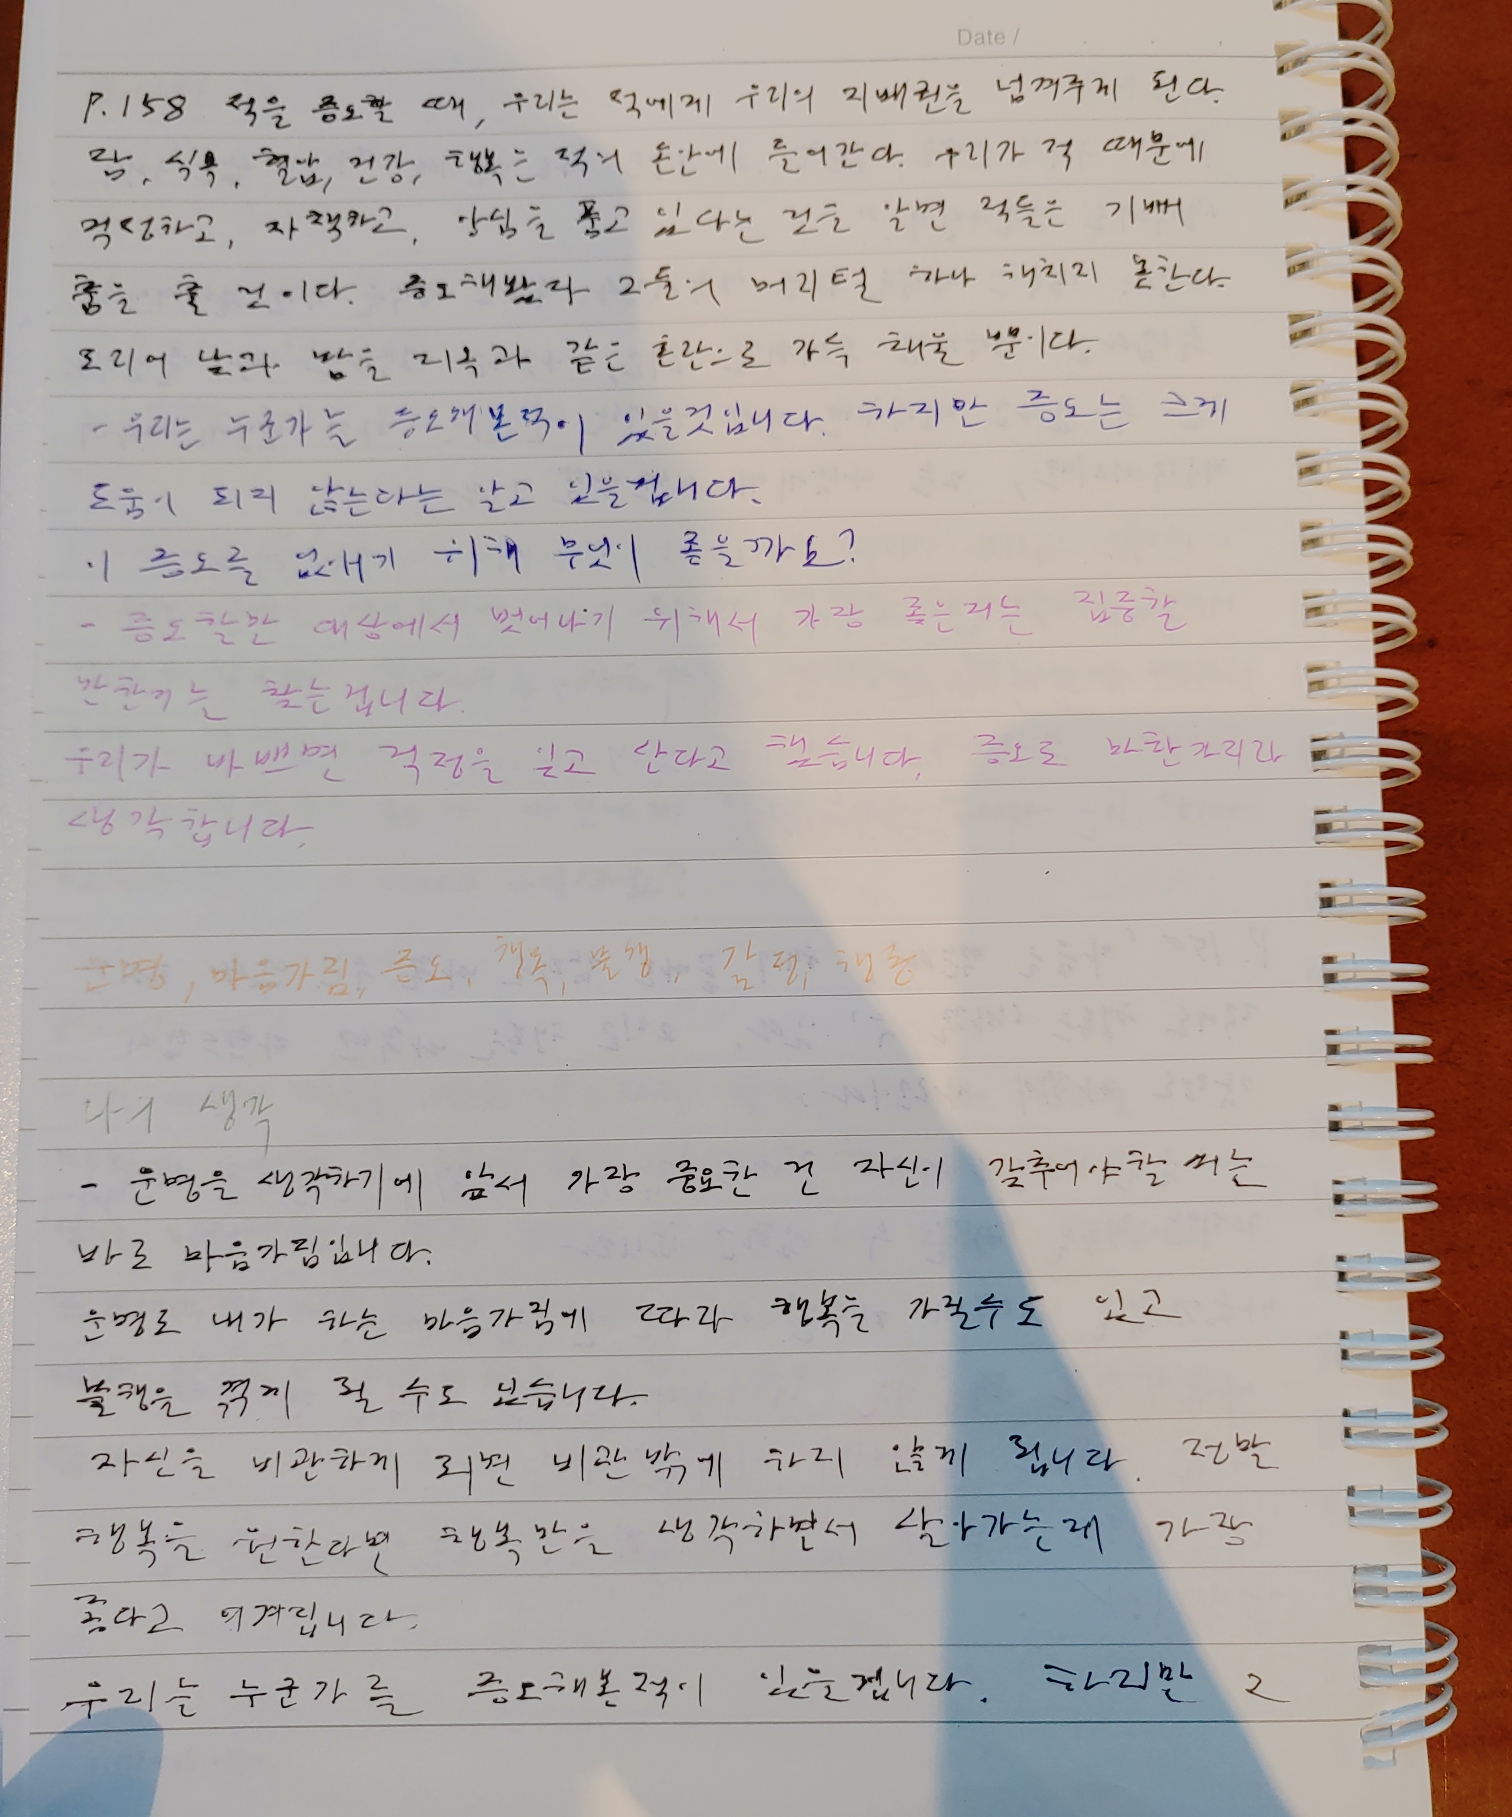 Date /
P.158 적을 증오할 때, 우리는 적에게 우리의 지배권을 넘겨주게 된다.
잠, 식욕, 혈압, 건강, 행복은 적의 손안에 들어간다. 우리가 적 때문에
걱정하고, 자책하고, 앙심을 품고 있다는 것을 알면 적들은 기뻐
춤을 출 것이다. 증오해봤자 그들의 머리털 하나 해치지 못한다.
도리어 낮과 밤을 지옥과 같은 혼란으로 가득 채울 뿐이다.
- 우리는 누군가를 증오해본적이 있을것입니다. 하지만 증오는 크게
도움이 되지 않는다는 알고 있을겁니다.
이 증오를 없애기 위해 무엇이 좋을까요?
- 증오할만 대상에서 벗어나기 위해서 가장 좋은거는 집중할
만한거는 찾는겁니다.
우리가 바쁘면 걱정을 잊고 산다고 했습니다. 증오로 마찬가지라
생각합니다.
운명, 마음가짐, 증오, 행복, 불행, 걱정, 행동
나의 생각
- 운명을 생각하기에 앞서 가장 중요한 건 자신이 갖추어야할 거는
바로 마음가짐입니다.
운명로 내가 하는 마음가짐에 따라 행복을 가질수도 있고
불행을 겪게 될 수도 있습니다.
자신을 비관하게 되면 비관밖에 하지 않게 됩니다. 정말
행복을 원한다면 행복만을 생각하면서 살아가는게 가장
좋다고 여겨집니다.
우리는 누군가를 증오해본적이 있을겁니다. 하지만 그